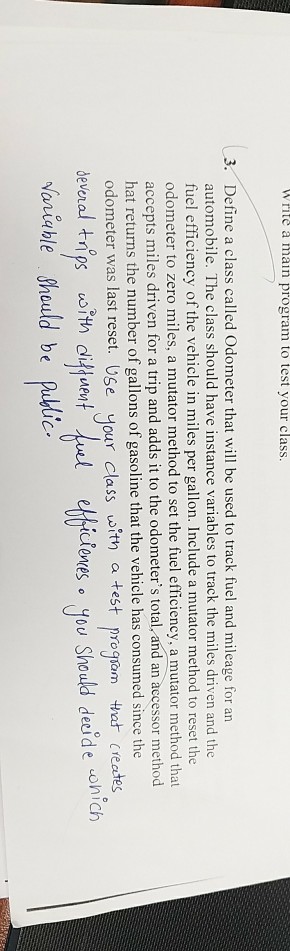 Write a main program to test your class.
3. Define a class called Odometer that will be used to track fuel and mileage for an
automobile. The class should have instance variables to track the miles driven and the
fuel efficiency of the vehicle in miles per gallon. Include a mutator method to reset the
odometer to zero miles, a mutator method to set the fuel efficiency, a mutator method that
accepts miles driven for a trip and adds it to the odometer's total, and an accessor method
hat returns the number of gallons of gasoline that the vehicle has consumed since the
odometer was last reset. Use your class with a test program that creates
several trips with different fuel efficiencies. you should decide which
variable should be public.